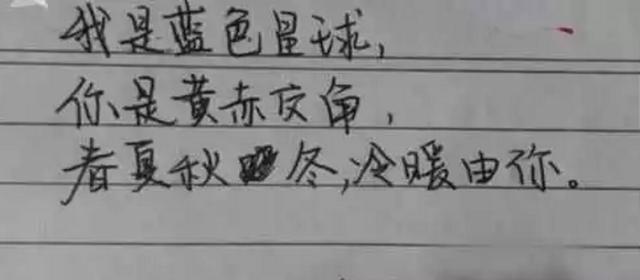 我是蓝色星球,
你是黄赤交角,
春夏秋冬,冷暖由你。